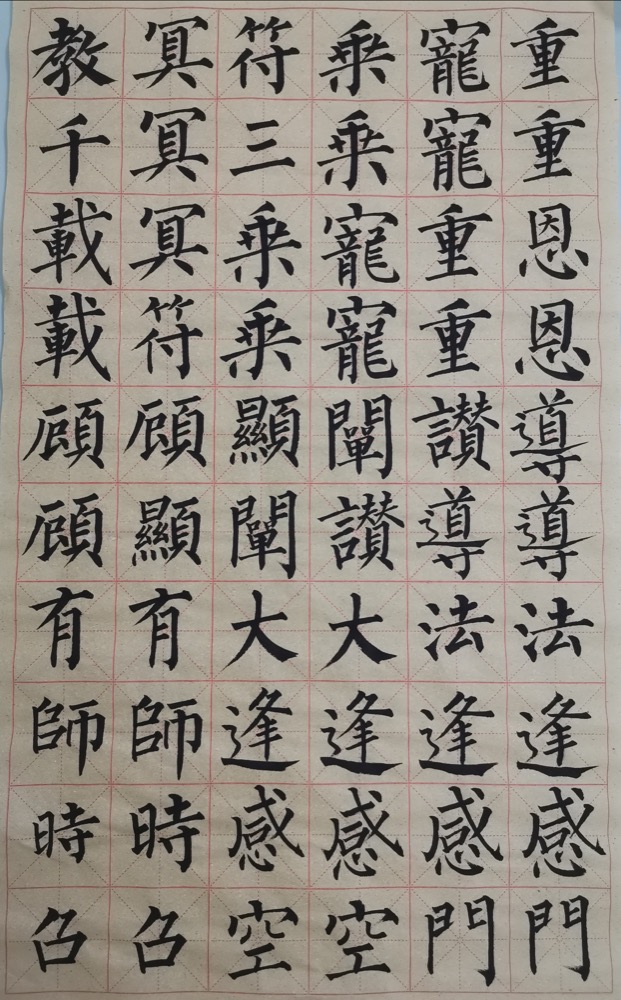 重重恩恩導導法逢感門
寵寵重重讚導法逢感門
乗乗寵寵闡讚大逢感空
符三乗乗顯闡大逢感空
冥冥冥符頋顯有師時召
教千載載頋頋有師時召